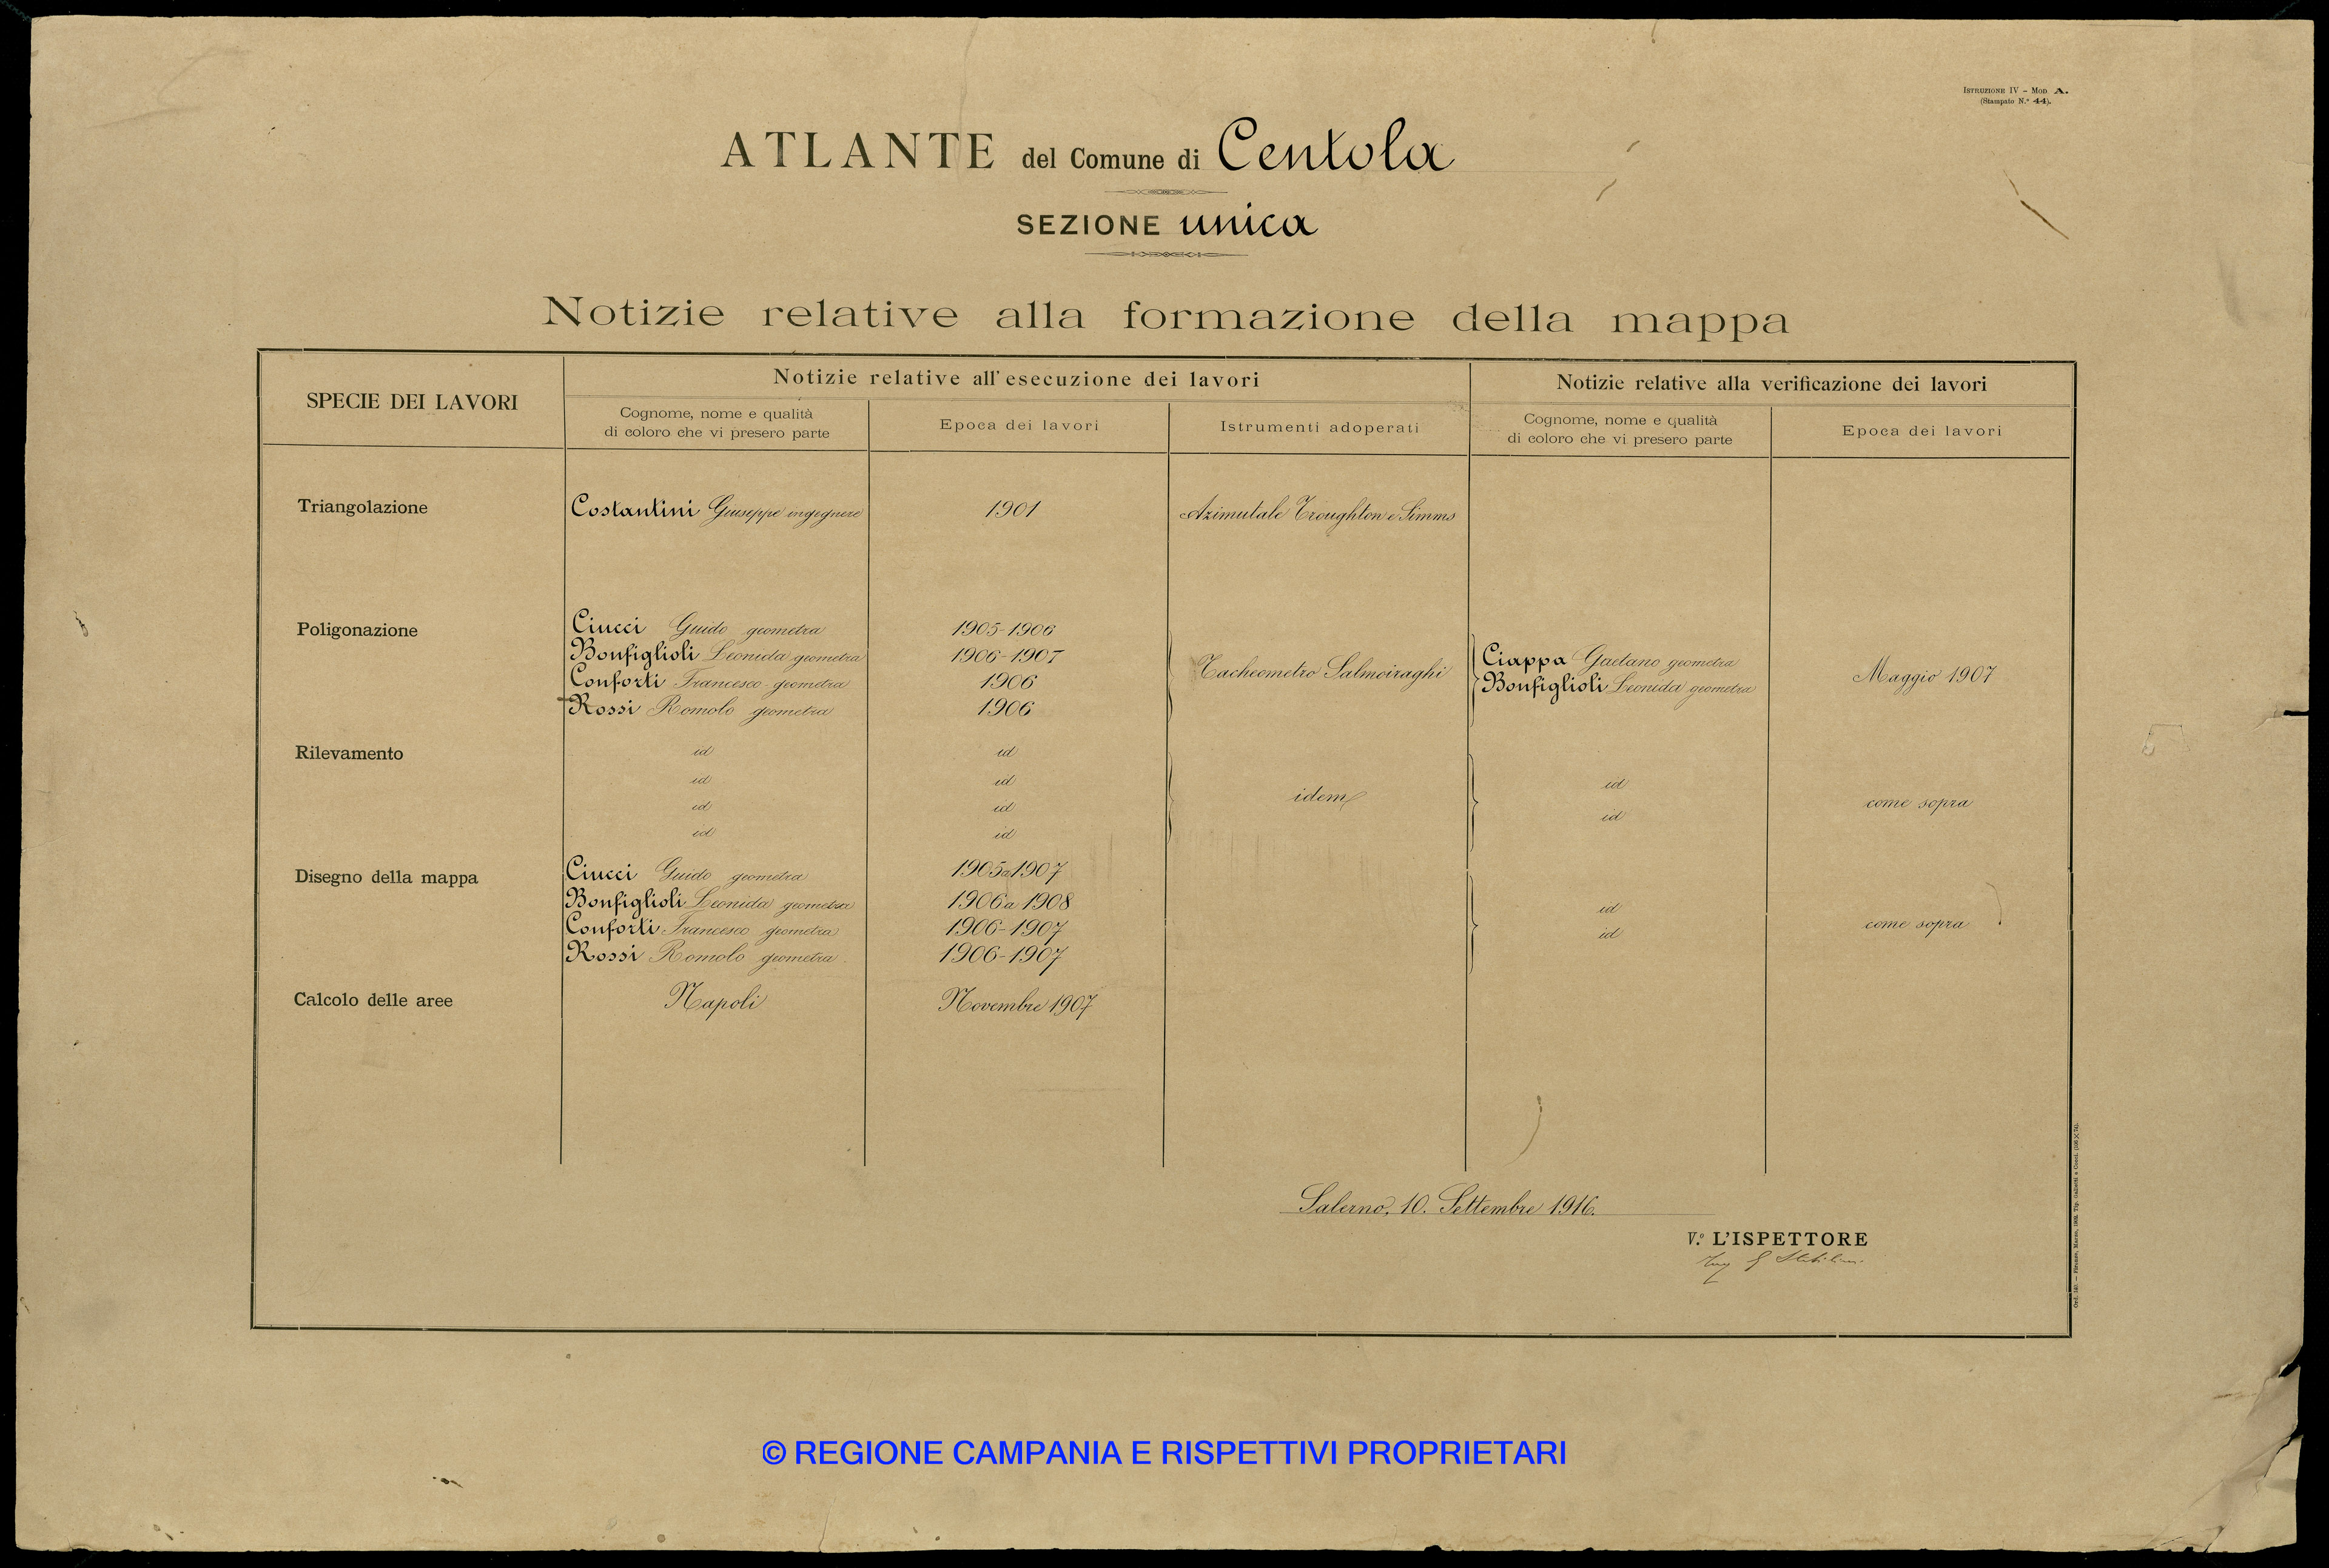 ISTRUZIONE IV – MOD A.
(Stampato N.° 44).
ATLANTE del Comune di Centola
SEZIONE unica
Notizie relative alla formazione della mappa
SPECIE DEI LAVORI
Notizie relative all'esecuzione dei lavori
Notizie relative alla verificazione dei lavori
Cognome, nome e qualità
di coloro che vi presero parte
Epoca dei lavori
Istrumenti adoperati
Cognome, nome e qualità
di coloro che vi presero parte
Epoca dei lavori
Triangolazione
Costantini Giuseppe ingegnere
1901
Azimutale Troughton e Simms
Poligonazione
Ciucci Guido geometra
1905-1906
Bonfiglioli Leonida geometra
1906-1907
Conforti Francesco geometra
1906
Rossi Romolo geometra
1906
Tacheometro Salmoiraghi
Ciappa Gaetano geometra
Bonfiglioli Leonida geometra
Maggio 1907
Rilevamento
id id
id id
id id
id id
idem
id
id
come sopra
Disegno della mappa
Ciucci Guido geometra
1905 a 1907
Bonfiglioli Leonida geometra
1906 a 1908
Conforti Francesco geometra
1906-1907
Rossi Romolo geometra
1906-1907
id
id
come sopra
Calcolo delle aree
Napoli
Novembre 1907
Salerno, 10. Settembre 1916.
V.° L'ISPETTORE
© REGIONE CAMPANIA E RISPETTIVI PROPRIETARI